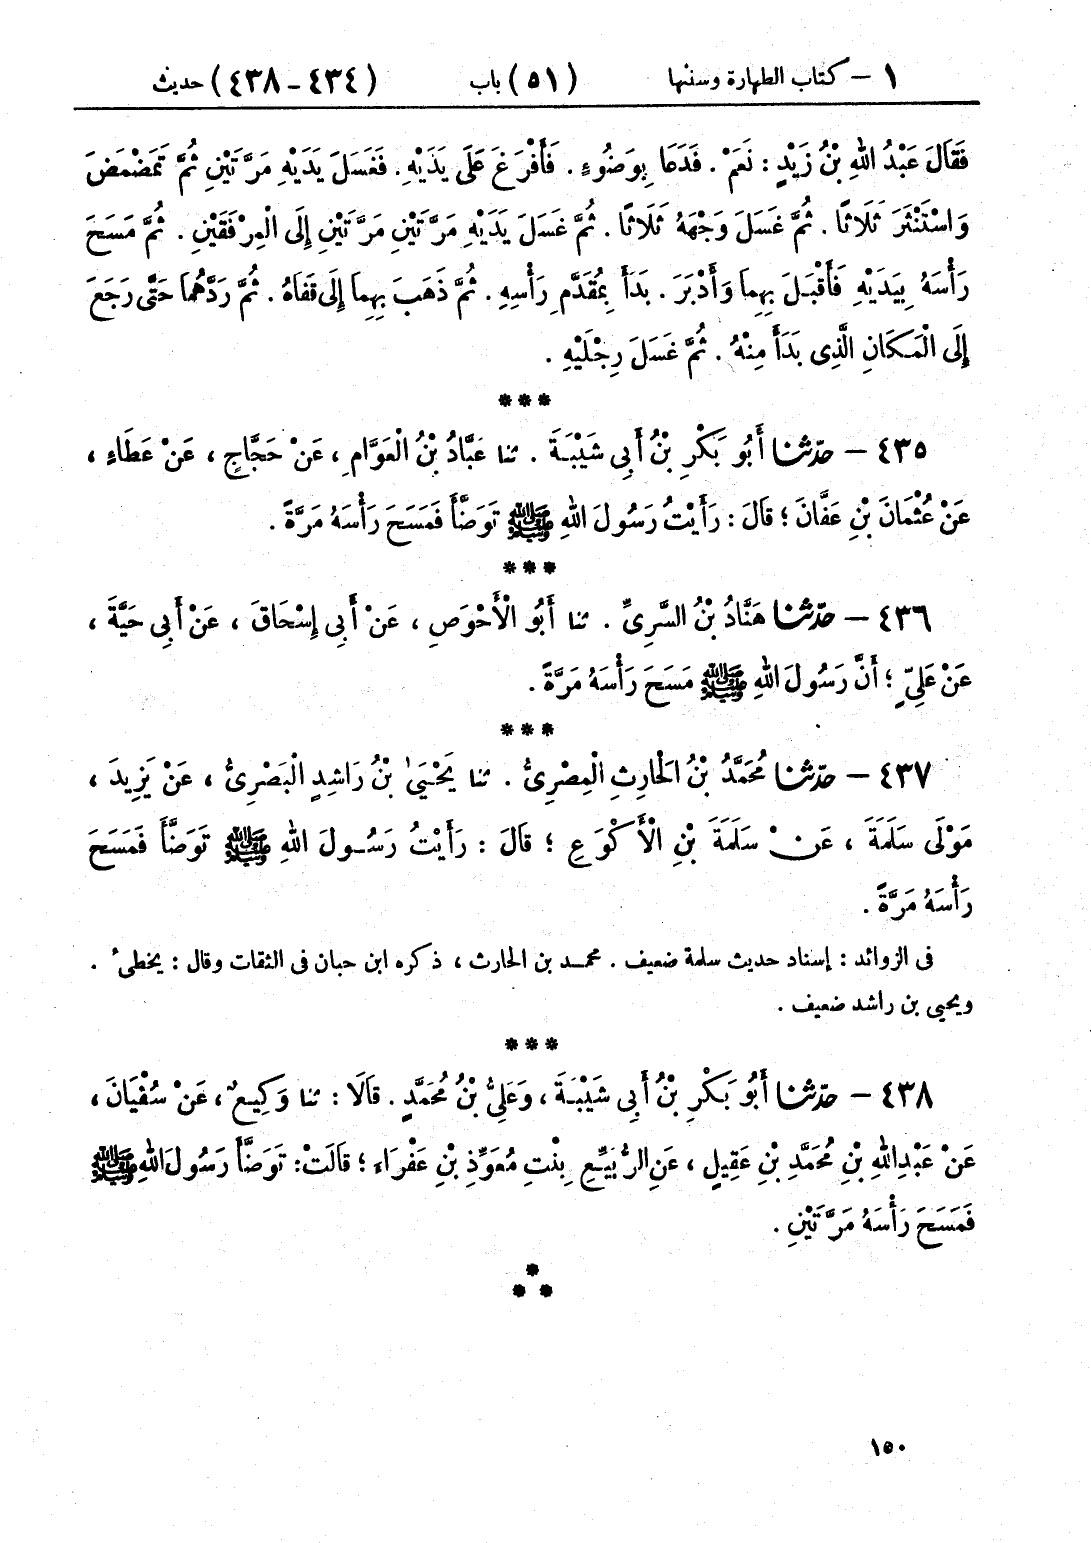 ١ – كتاب الطهارة وسننها (٥١) باب (٤٣٤ – ٤٣٨) حديث
فَقَالَ عَبْدُ اللهِ بْنُ زَيْدٍ : نَعَمْ . فَدَعَا بِوَضُوءٍ . فَأَفْرَغَ عَلَى يَدَيْهِ . فَغَسَلَ يَدَيْهِ مَرَّتَيْنِ ثُمَّ تَمَضْمَضَ
وَاسْتَنْثَرَ ثَلَاثًا . ثُمَّ غَسَلَ وَجْهَهُ ثَلَاثًا . ثُمَّ غَسَلَ يَدَيْهِ مَرَّتَيْنِ مَرَّتَيْنِ إِلَى الْمِرْفَقَيْنِ . ثُمَّ مَسَحَ
رَأْسَهُ بِيَدَيْهِ فَأَقْبَلَ بِهِمَا وَأَدْبَرَ . بَدَأَ بِمُقَدَّمِ رَأْسِهِ . ثُمَّ ذَهَبَ بِهِمَا إِلَى قَفَاهُ . ثُمَّ رَدَّهُمَا حَتَّى رَجَعَ
إِلَى الْمَكَانِ الَّذِى بَدَأَ مِنْهُ . ثُمَّ غَسَلَ رِجْلَيْهِ .
***
٤٣٥ – حدّثنا أَبُو بَكْرِ بْنُ أَبِى شَيْبَةَ . ثنا عَبَّادُ بْنُ الْعَوَّامِ ، عَنْ حَجَّاجٍ ، عَنْ عَطَاءٍ ،
عَنْ عُثْمَانَ بْنِ عَفَّانَ ؛ قَالَ : رَأَيْتُ رَسُولَ اللهِ ﷺ تَوَضَّأَ فَمَسَحَ رَأْسَهُ مَرَّةً .
***
٤٣٦ – حدّثنا هَنَّادُ بْنُ السَّرِىِّ . ثنا أَبُو الْأَحْوَصِ ، عَنْ أَبِى إِسْحَاقَ ، عَنْ أَبِى حَيَّةَ ،
عَنْ عَلِىٍّ ؛ أَنَّ رَسُولَ اللهِ ﷺ مَسَحَ رَأْسَهُ مَرَّةً .
***
٤٣٧ – حدّثنا مُحَمَّدُ بْنُ الحَارِثِ الْمِصْرِىُّ . ثنا يَحْيَىٰ بْنُ رَاشِدٍ الْبَصْرِىُّ ، عَنْ يَزِيدَ ،
مَوْلَى سَلَمَةَ ، عَنْ سَلَمَةَ بْنِ الْأَكْوَعِ ؛ قَالَ : رَأَيْتُ رَسُولَ اللهِ ﷺ تَوَضَّأَ فَمَسَحَ
رَأْسَهُ مَرَّةً .
فى الزوائد : إسناد حديث سلمة ضعيف . محمد بن الحارث ، ذكره ابن حبان فى الثقات وقال : يخطىء .
ويحيى بن راشد ضعيف .
***
٤٣٨ – حدّثنا أَبُو بَكْرِ بْنُ أَبِى شَيْبَةَ ، وَعَلِىُّ بْنُ مُحَمَّدٍ . قَالَا : ثنا وَكِيعٌ ، عَنْ سُفْيَانَ ،
عَنْ عَبْدِ اللهِ بْنِ مُحَمَّدِ بْنِ عَقِيلٍ ، عَنِ الرُّبَيِّعِ بِنْتِ مُعَوِّذِ بْنِ عَفْرَاءَ ؛ قَالَتْ : تَوَضَّأَ رَسُولُ اللهِ ﷺ
فَمَسَحَ رَأْسَهُ مَرَّتَيْنِ .
*
* *
١٥٠